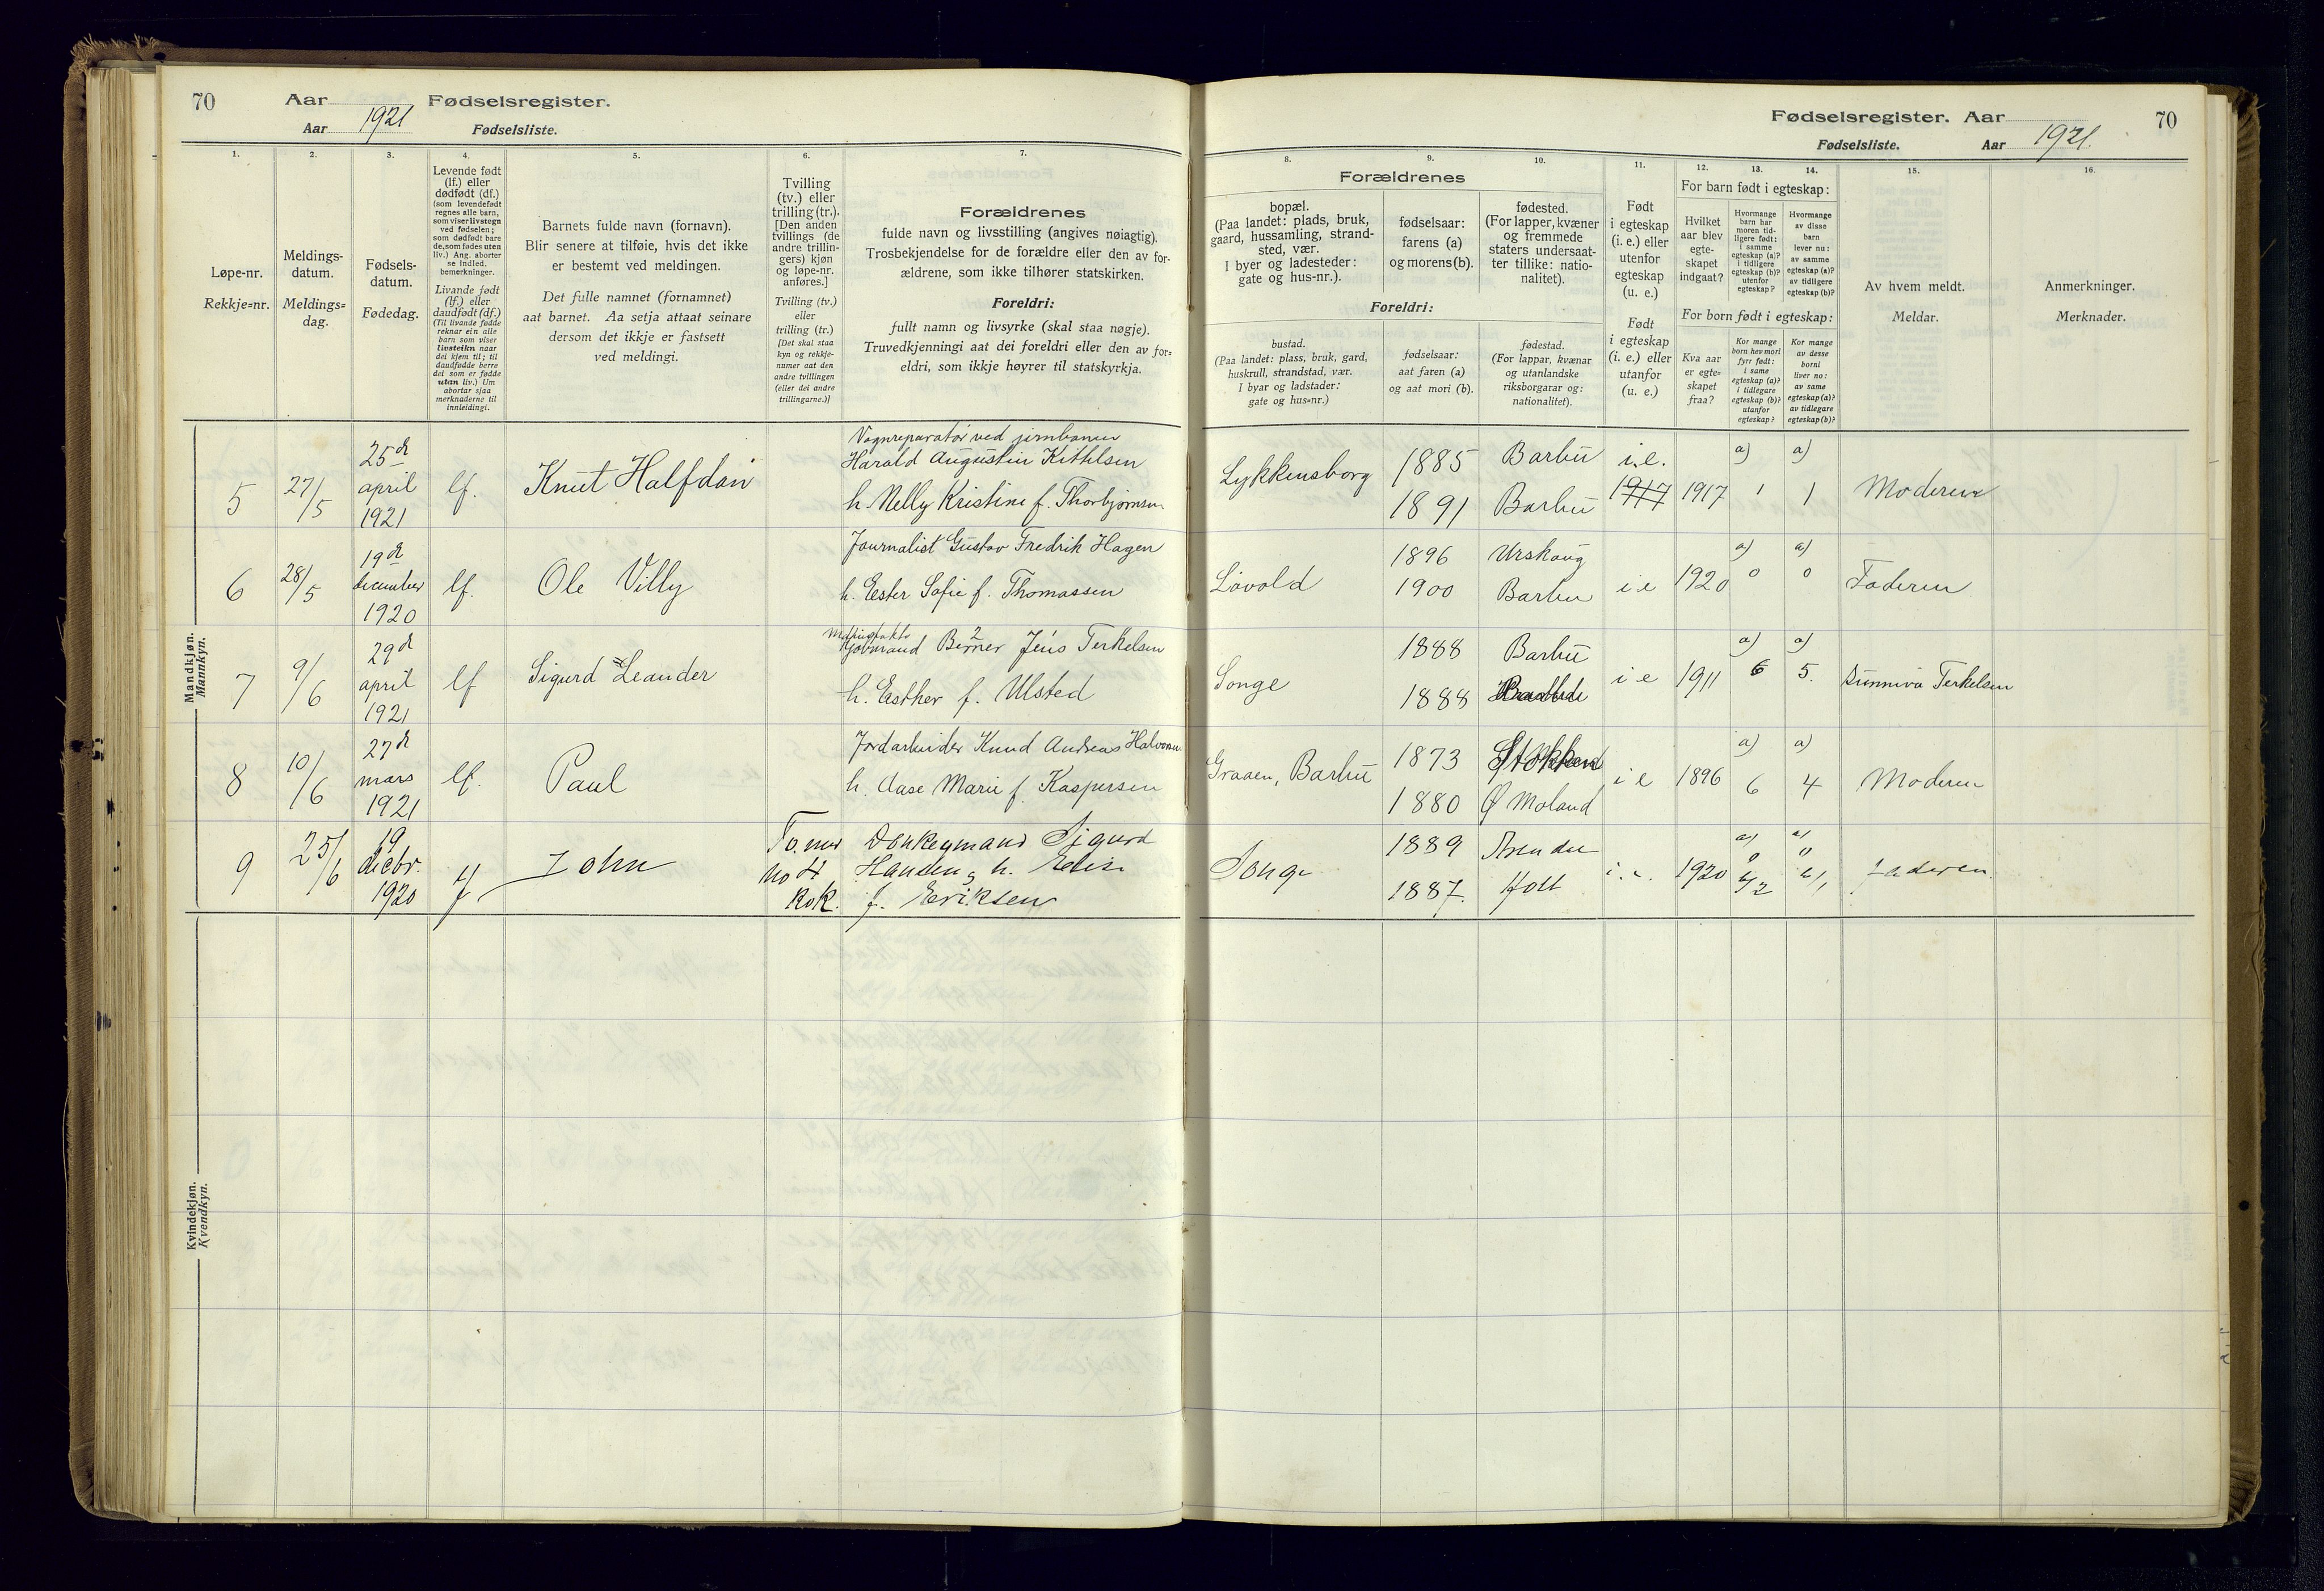 70 Aar 1921 Fødselsregister.
Aar Fødselsliste.
1. 2. 3. 4. 5. 6. 7.
Løpe-nr.
Rekkje=nr.
Meldings-
datum.
Meldings=
dag.
Fødsels-
datum.
Fødedag.
Levende født
(lf.) eller
dødfødt (df.)
(som levendefødt
regnes alle barn,
som viser livstegn
ved fødselen;
som dødfødt bare
de, som fødes uten
liv.) Ang. aborter
se indled.
bemerkninger.
Livande født
(lf.) eller
daudfødt (df.)
(Til livande fødde
reknar ein alle
barn som viser
livsteikn naar
dei kjem til; til
daudfødde berre
dei som er fødde
utan liv.) Um
abortar sjaa
merknaderne til
innleidingi.
Barnets fulde navn (fornavn).
Blir senere at tilføie, hvis det ikke
er bestemt ved meldingen.
Det fulle namnet (fornamnet)
aat barnet. Aa setja attaat seinare
dersom det ikkje er fastsett
ved meldingi.
Tvilling
(tv.) eller
trilling (tr.).
[Den anden
tvillings (de
andre trillin-
gers) kjøn
og løpe-nr.
anføres.]
Tvilling (tv.)
eller
trilling (tr.)
[Det skal staa
kyn og rekkje-
numer aat den
andre tvillingen
(eller dei andre
trillingarne.)]
Forældrenes
fulde navn og livsstilling (angives nøiagtig).
Trosbekjendelse for de forældre eller den av for-
ældrene, som ikke tilhører statskirken.
Foreldri:
fullt namn og livsyrke (skal staa nøgje).
Truvedkjenningi aat dei foreldri eller den av for=
eldri, som ikkje høyrer til statskyrkja.
Mandkjøn.
Mannkyn.
5 27/5 25d april 1921 lf. Knut Halfdan
Vognreparatør ved jernbanen
Harald Augustin Kittilsen
h. Nelly Kristine f. Thorbjørnsen
6 28/5 19d december 1920 lf. Ole Villy
Journalist Gustav Fredrik Hagen
h. Ester Sofie f. Thomassen
7 9/6 29d april 1921 lf Sigurd Leander
Berner Jens Terkelsen
h. Esther f. Ulsted
8 10/6 27d mars 1921 lf. Paul
Jordarbeider Knud Andreas Halvorsen
h. Aase Marie f. Kaspersen
9 25/6 19 decbr. 1920 John
no 4
Donkeymand Sigurd
Hansen, h. Elise
f. Eriksen
Kvindekjøn.
Kvendkyn.
Fødselsregister. Aar 1921 70
Fødselsliste. Aar
8. 9. 10. 11. 12. 13. 14. 15. 16.
Forældrenes
bopæl.
(Paa landet: plads, bruk,
gaard, hussamling, strand-
sted, vær.
I byer og ladesteder:
gate og hus-nr.).
fødselsaar:
farens (a)
og morens (b).
fødested.
(For lapper, kvæner
og fremmede
staters undersaat-
ter tillike: natio-
nalitet).
Foreldri:
bustad.
(Paa landet: plass, bruk, gard,
huskrull, strandstad, vær.
I byar og ladstader:
gate og hus=nr.)
fødselsaar:
aat faren (a)
og aat mori (b).
fødestad.
(For lappar, kvænar
og utanlandske
riksborgarar og:
nationalitet).
Født
i egteskap
(i. e.) eller
utenfor
egteskap
(u. e.)
Født
i egteskap
(i. e.) eller
utanfor
(u. e.)
For barn født i egteskap:
Hvilket
aar blev
egte-
skapet
indgaat?
Hvormange
barn har
moren tid-
ligere født:
i samme
egteskap (a)?
i tidligere
egteskap (b)?
utenfor
egteskap?
Hvormange
av disse
barn
lever nu:
av samme
egteskap (a)?
av tidligere
egteskap (b)?
For born født i egteskap:
Kva aar
er egte-
skapet
fraa?
Kor mange
born hev mori
fyrr født:
i same
egteskap (a)?
i tidlegare
egteskap (b)?
utanfor
egteskap?
Kor mange
av desse
borni
liver no:
av same
egteskap (a)?
av tidlegare
egteskap (b)?
Av hvem meldt.
Meldar.
Anmerkninger.
Merknader.
Lykkensborg 1885 Barbu i.e. a) a)
1891 Barbu 1917 1917 1 1 Moderen
Løvold 1896 Urskoug a) a)
1900 Barbu i e 1920 0 0 Faderen
Songe 1888 Barbu a) a)
1888 i e 1911 6 5. Sunniva Terkelsen
Graaen, Barbu 1873 Stokken a) a)
1880 Ø Moland i e 1896 6 4 Moderen
Songe 1889 Arendal a) a)
1887. Holt i. e. 1920 0 0 b/2 b/1 Faderen.